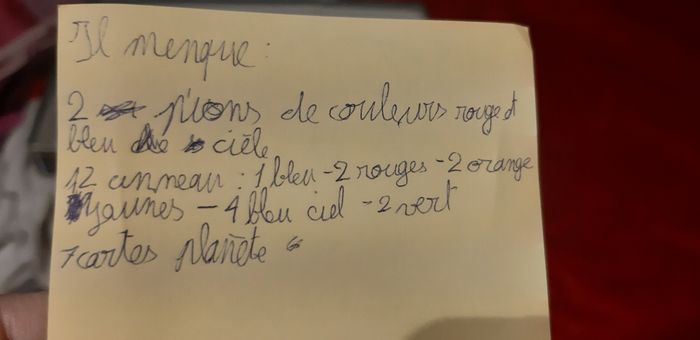 Il menque :
2 pions de couleurs rouge et
bleu cièle
12 anneau : 1 bleu - 2 rouges - 2 orange
jaunes - 4 bleu ciel - 2 vert
7 cartes planète 6